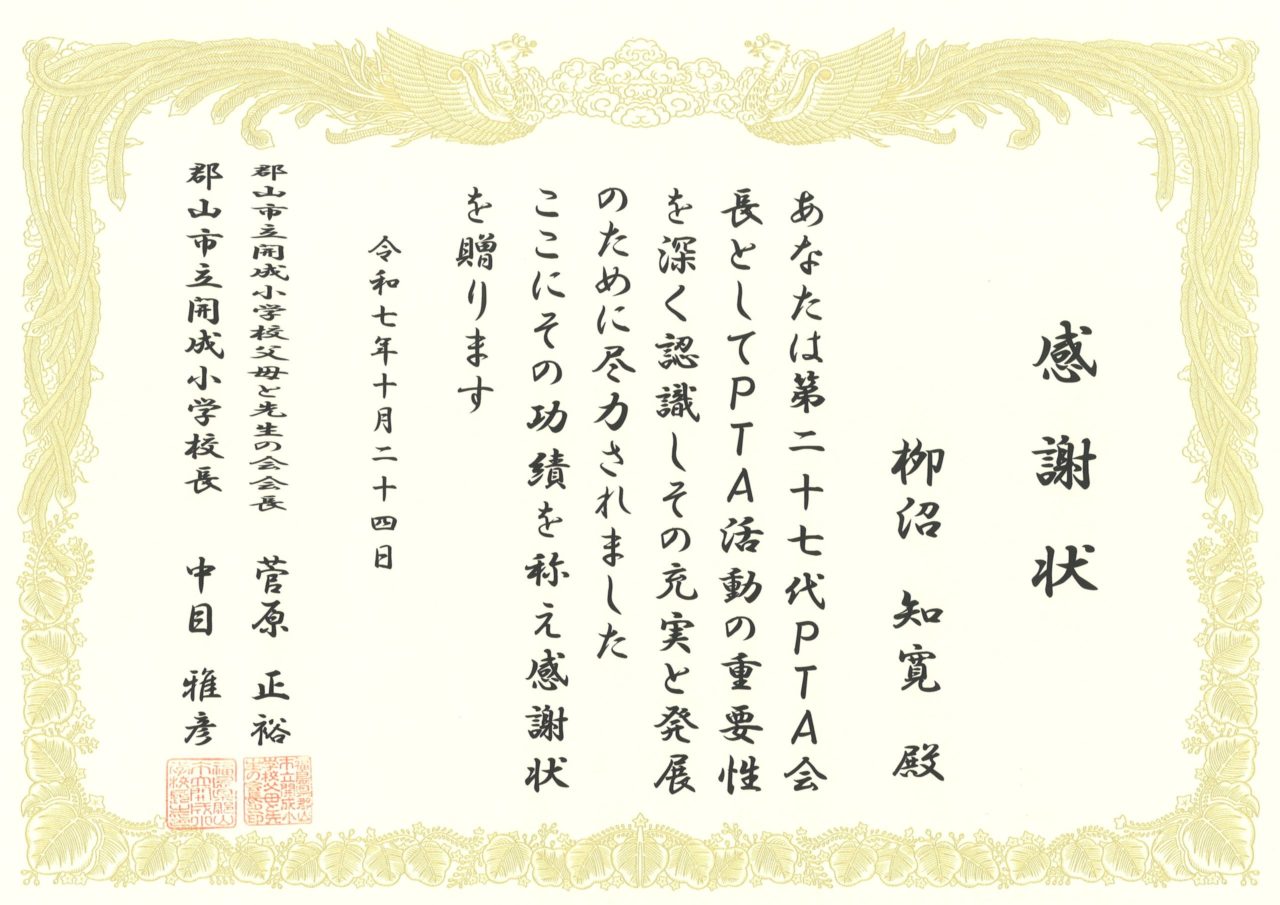 感謝状
柳沼 知寛 殿
あなたは第二十七代PTA会
長としてPTA活動の重要性
を深く認識しその充実と発展
のために尽力されました
ここにその功績を称え感謝状
を贈ります
令和七年十月二十四日
郡山市立開成小学校父母と先生の会会長 菅原 正裕
郡山市立開成小学校長 中目 雅彦